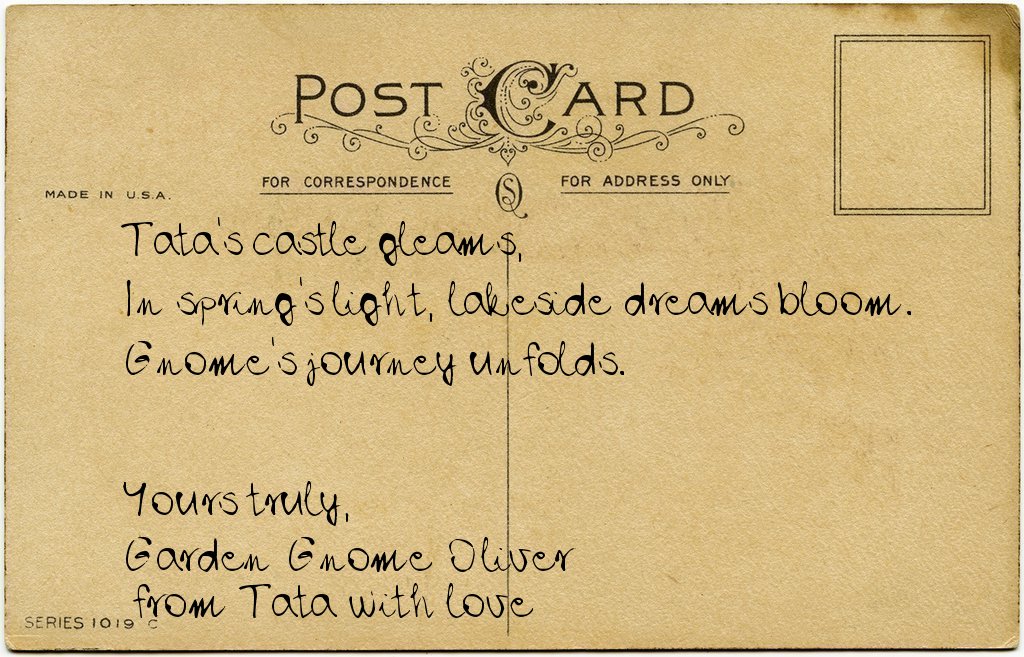 POST CARD
FOR CORRESPONDENCE
FOR ADDRESS ONLY
MADE IN U.S.A.
Tata's castle gleams,
In spring's light, lakeside dreams bloom.
Gnome's journey unfolds.
Yours truly,
Garden Gnome Oliver
from Tata with love
SERIES 1019 C